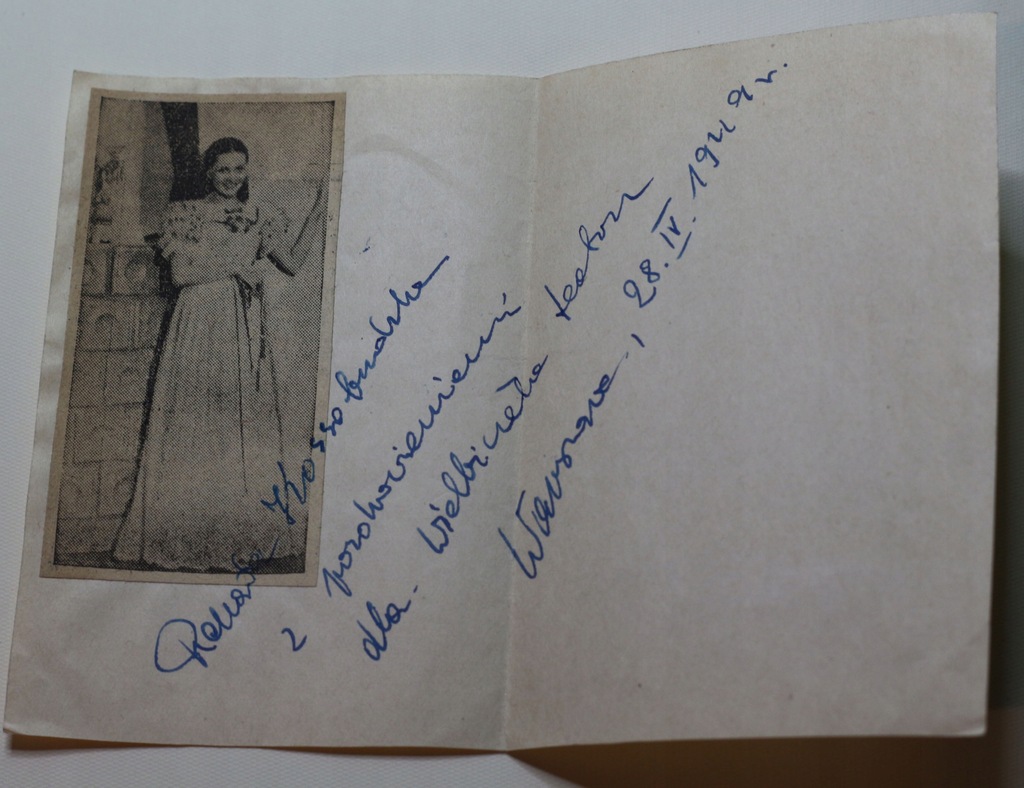 Renata Kossobudzka
z pozdrowieniami
dla wielbiciela teatru
Warszawa, 28.IV.